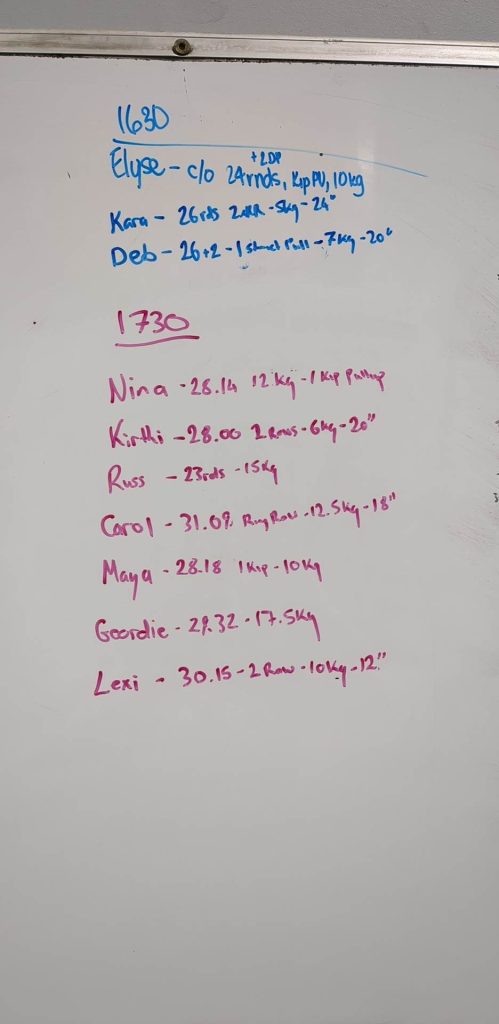 1630
+2DP
Elyse - c/o 24rnds, Kip PU, 10kg
Kara - 26rds 2RR - 5kg - 24"
Deb - 26+2 - 1 Pull - 7kg - 20"
1730
Nina - 28.14 12kg - 1 Kip Pullup
Kirthi - 28.00 2 Rows - 6kg - 20"
Russ - 23rds - 15kg
Carol - 31.09 Ring Row - 12.5kg - 18"
Maya - 28.18 1 Kip - 10kg
Geordie - 29.32 - 17.5kg
Lexi - 30.15 - 2 Row - 10kg - 12"